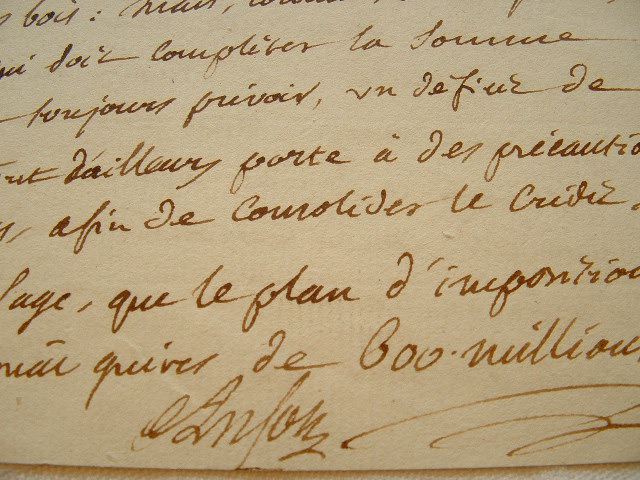 bois : mais,
qui doit completter la Somme
toujours prévoir, un deficit de
d'ailleurs porte à des précautio
, afin de consolider le Crédit,
Sage, que le plan d'imposition
guères de 600. millions
Anson